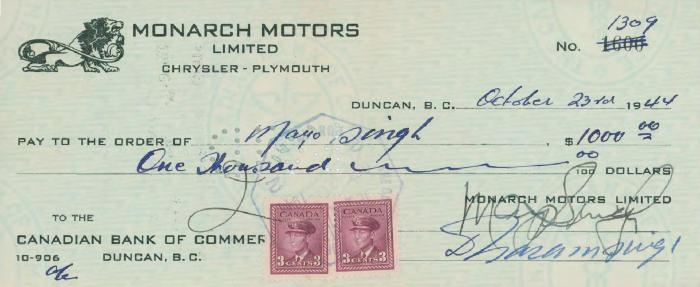 MONARCH MOTORS
LIMITED
CHRYSLER - PLYMOUTH
1309
No. 1600
DUNCAN, B. C. October 23rd 1944
PAY TO THE ORDER OF Mayo Singh $1000 00
One Thousand 00/100 DOLLARS
MONARCH MOTORS LIMITED
TO THE
CANADIAN BANK OF COMMER
10-906 DUNCAN, B. C.
CANADA
3 CENTS 3
CANADA
3 CENTS 3
Mayo Singh